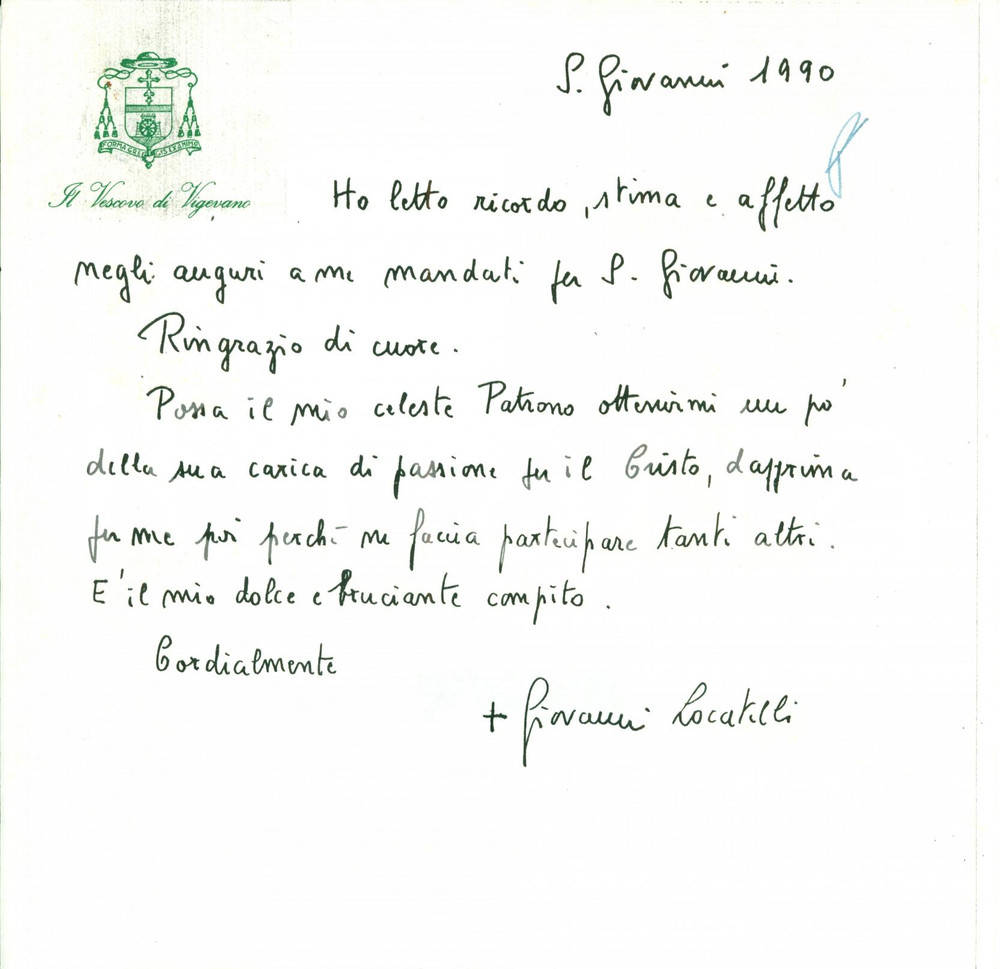 S. Giovanni 1990
Il Vescovo di Vigevano
Ho letto ricordo, stima e affetto
negli auguri a me mandati per S. Giovanni.
Ringrazio di cuore.
Possa il mio celeste Patrono ottenermi un pò
della sua carica di passione per il Cristo, dapprima
per me poi perchè ne faccia partecipare tanti altri.
E' il mio dolce e bruciante compito.
Cordialmente
+ Giovanni Locatelli